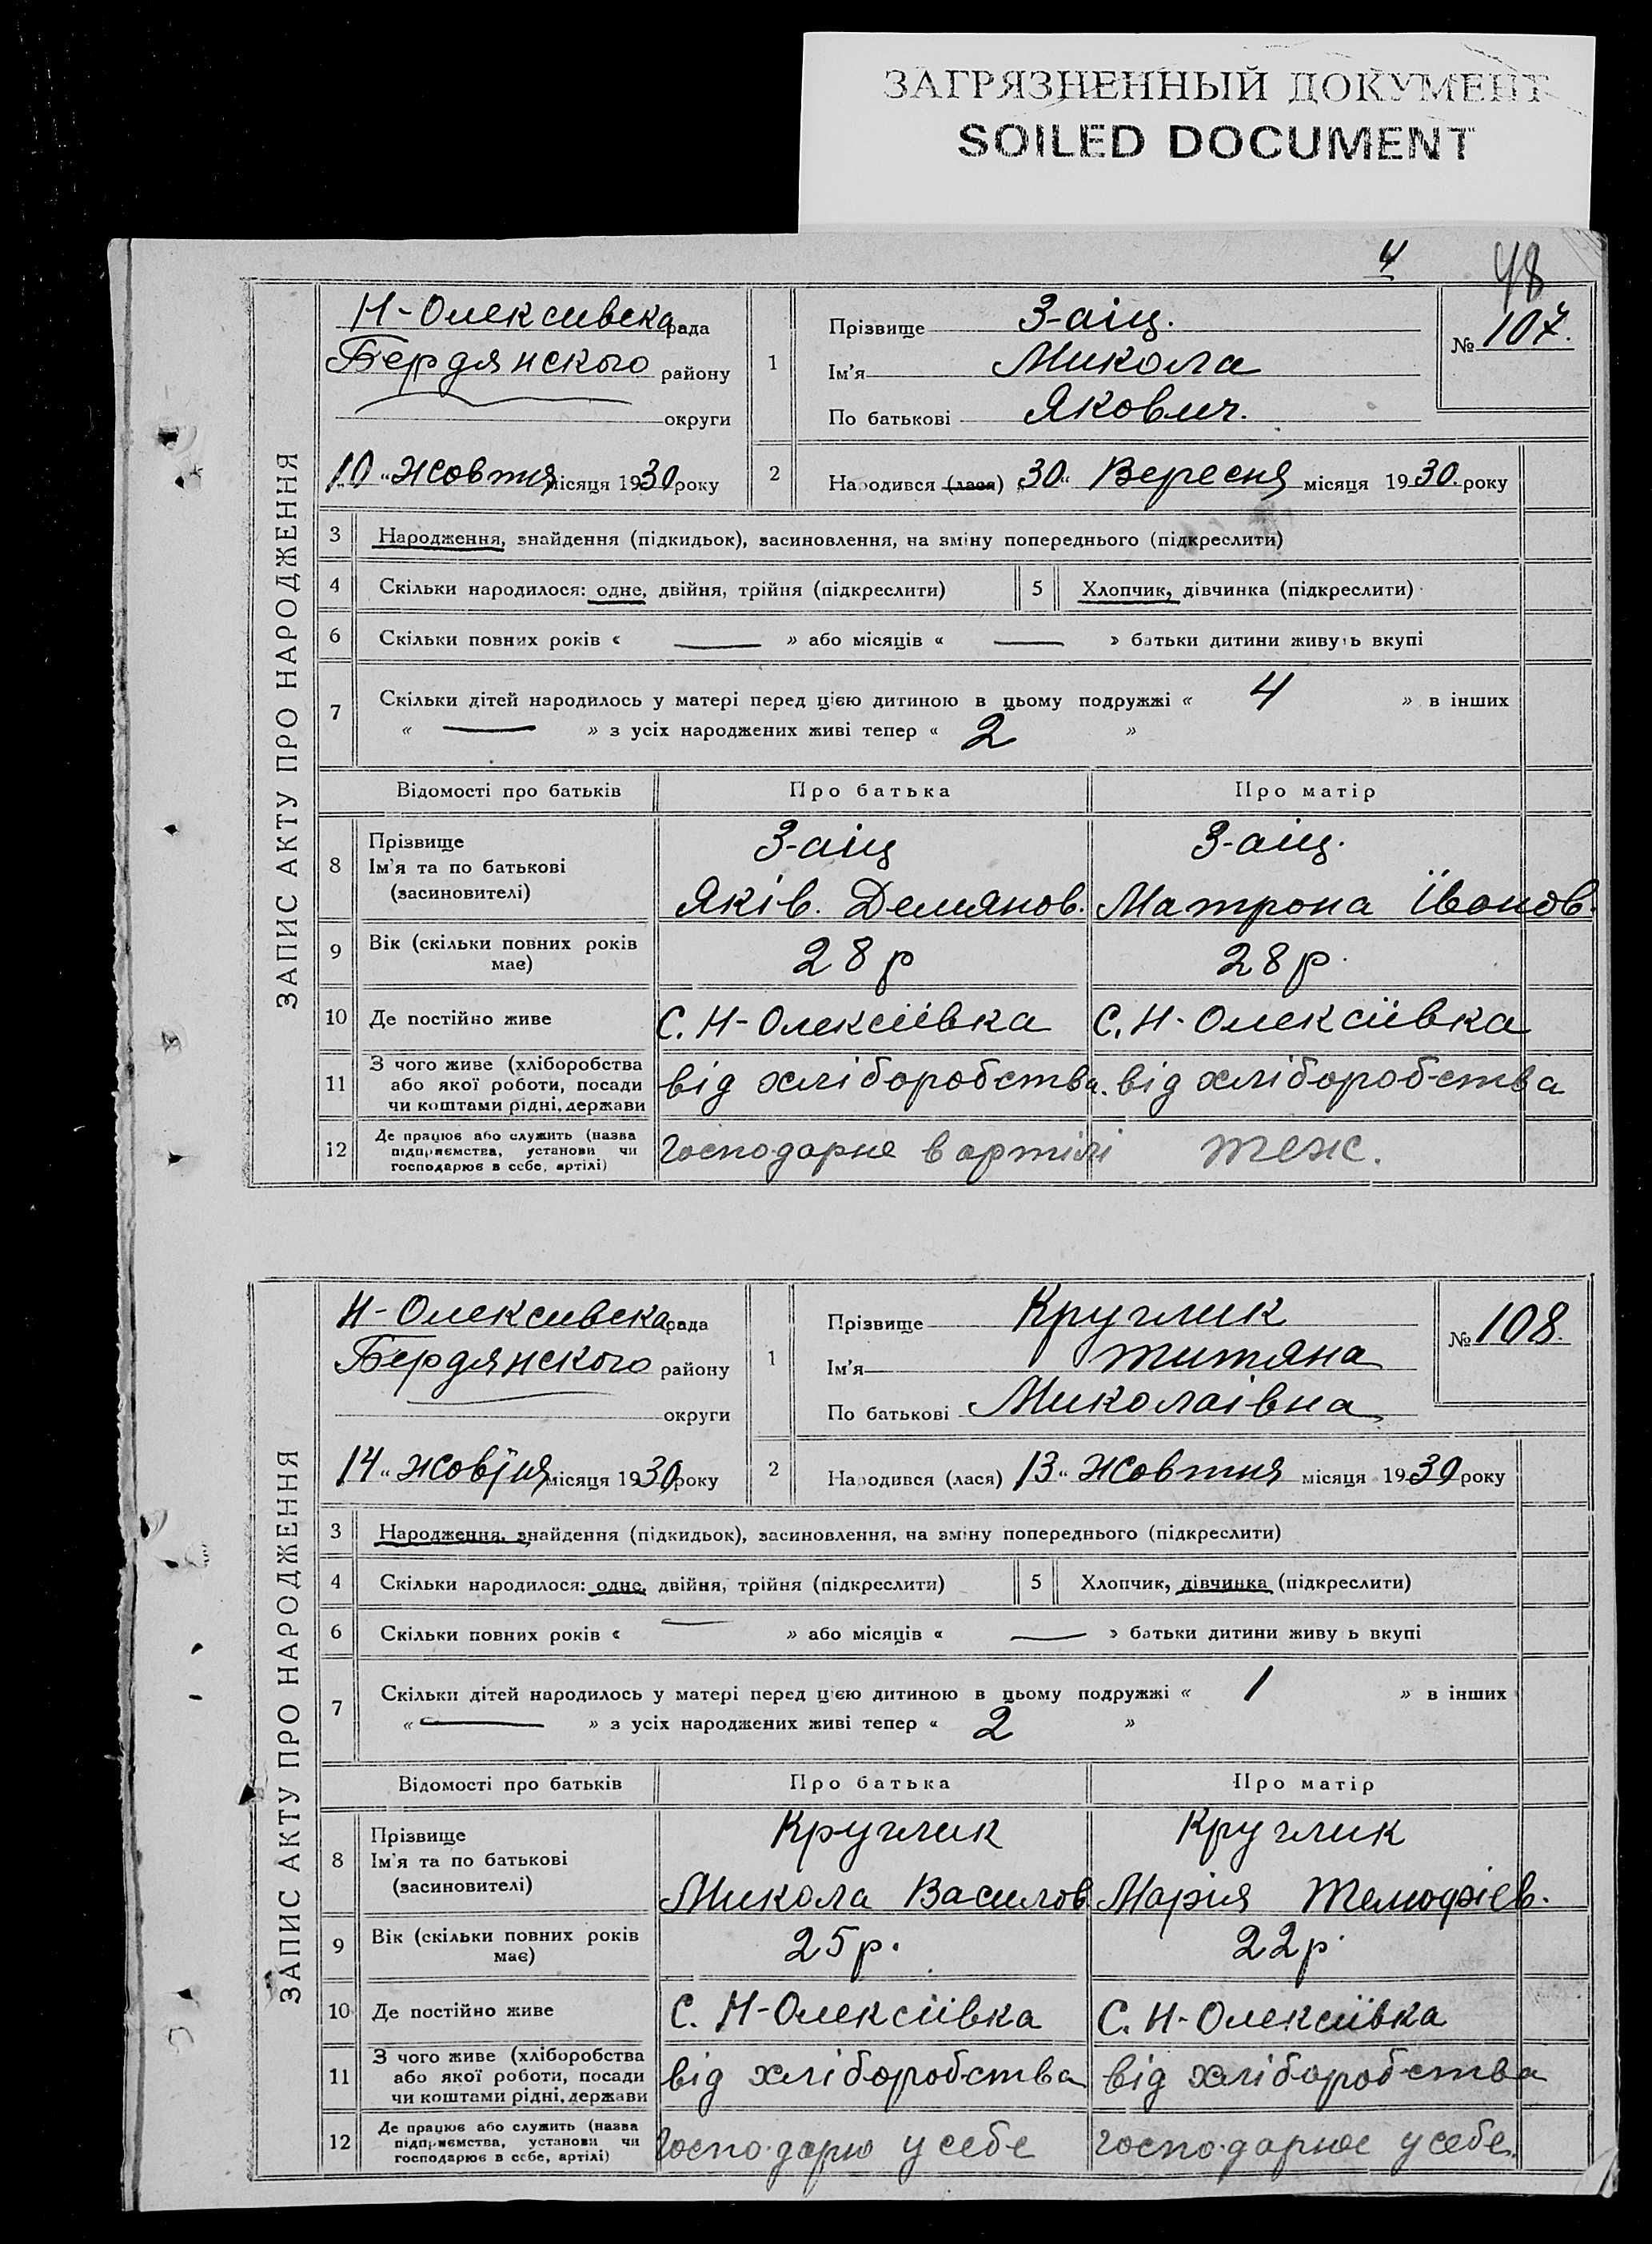 ЗАГРЯЗНЕННЫЙ ДОКУМЕНТ
SOILED DOCUMENT
4
48
ЗАПИС АКТУ ПРО НАРОДЖЕННЯ
Н-Олексивска рада
Бердянского району
округи
10 " Жовтня місяця 1930 року
1
Прізвище З-аіц.
Ім'я Микола
По батькові Якович.
№ 107.
2
Народився (лася) "30" Вересня місяця 1930. року
3 Народження, знайдення (підкидьок), засиновлення, на зміну попереднього (підкреслити)
4 Скільки народилося: одне, двійня, трійня (підкреслити) 5 Хлопчик, дівчинка (підкреслити)
6 Скільки повних років « — » або місяців « — » батьки дитини живуть вкупі
7 Скільки дітей народилось у матері перед цією дитиною в цьому подружжі « 4 » в інших
« — » з усіх народжених живі тепер « 2 »
Відомості про батьків Про батька Про матір
8 Прізвище
Ім'я та по батькові
(засиновителі)
З-аіц
Яків. Демянов.
З-аіц.
Матрона Івонов.
9 Вік (скільки повних років
має)
28 р
28 р.
10 Де постійно живе С. Н-Олексіївка С. Н-Олексіївка
11 З чого живе (хліборобства
або якої роботи, посади
чи коштами рідні, держави
від хліборобства. від хліборобства
12 Де працює або служить (назва
підприємства, установи чи
господарює в себе, артілі)
господарне в артілі теж.
ЗАПИС АКТУ ПРО НАРОДЖЕННЯ
Н-Олексивска рада
Бердянского району
округи
14 " жовтня місяця 1930 року
1
Прізвище Круглик
Ім'я титяна
По батькові Миколаівна
№ 108.
2
Народився (лася) 13 " Жовтня місяця 1930 року
3 Народження, знайдення (підкидьок), засиновлення, на зміну попереднього (підкреслити)
4 Скільки народилося: одне, двійня, трійня (підкреслити) 5 Хлопчик, дівчинка (підкреслити)
6 Скільки повних років « — » або місяців « — » батьки дитини живу ь вкупі
7 Скільки дітей народилось у матері перед цією дитиною в цьому подружжі « 1 » в інших
« — » з усіх народжених живі тепер « 2 »
Відомості про батьків Про батька Про матір
8 Прізвище
Ім'я та по батькові
(засиновителі)
Круглик
Микола Василов
Круглик
Марія Темофіев.
9 Вік (скільки повних років
має)
25 р.
22 р.
10 Де постійно живе С. Н-Олексіївка С. Н-Олексіївка
11 З чого живе (хліборобства
або якої роботи, посади
чи коштами рідні, держави
від хліборобства від хліборобства
12 Де працює або служить (назва
підприємства, установи чи
господарює в себе, артілі)
господарю у себе господарює у себе.